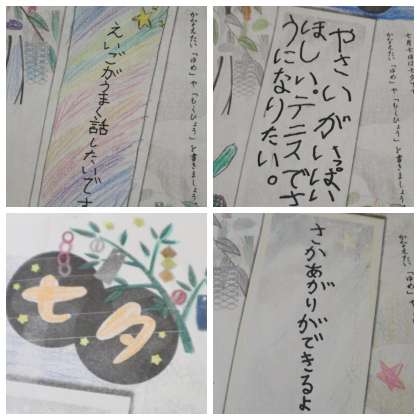 かなえたい「ゆめ」や「もくひょう」を書きましょう
えいごがうまく話したいです
七月七日は七夕で
かなえたい「ゆめ」や「もくひょう」を書きましょう
やさいがいっぱい
ほしい。テニスでき
うになりたい。
七夕
かなえたい「ゆめ」や
さかあがりができるよ